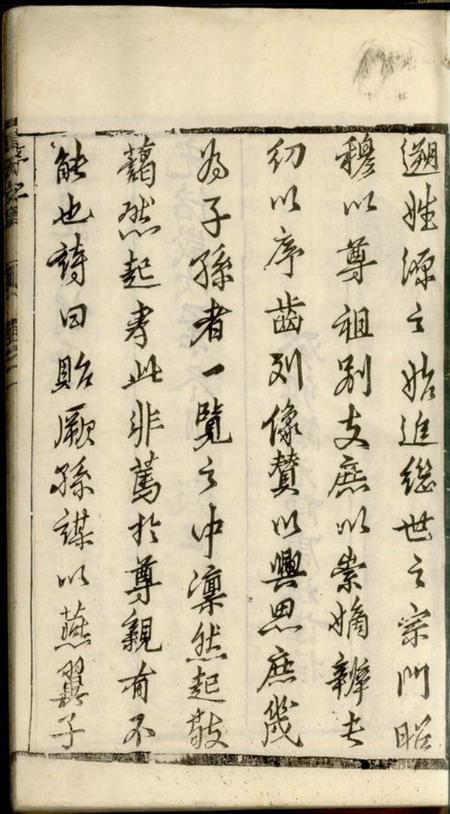 遡姓源之始進繼世之宗門昭
穆以尊祖别支庶以崇嫡辨長
幼以序齒列像賛以興思庶幾
為子孫者一覽之中凜然起敬
藹然起孝此非篤於尊親者不
能也詩曰貽厥孫謀以燕翼子